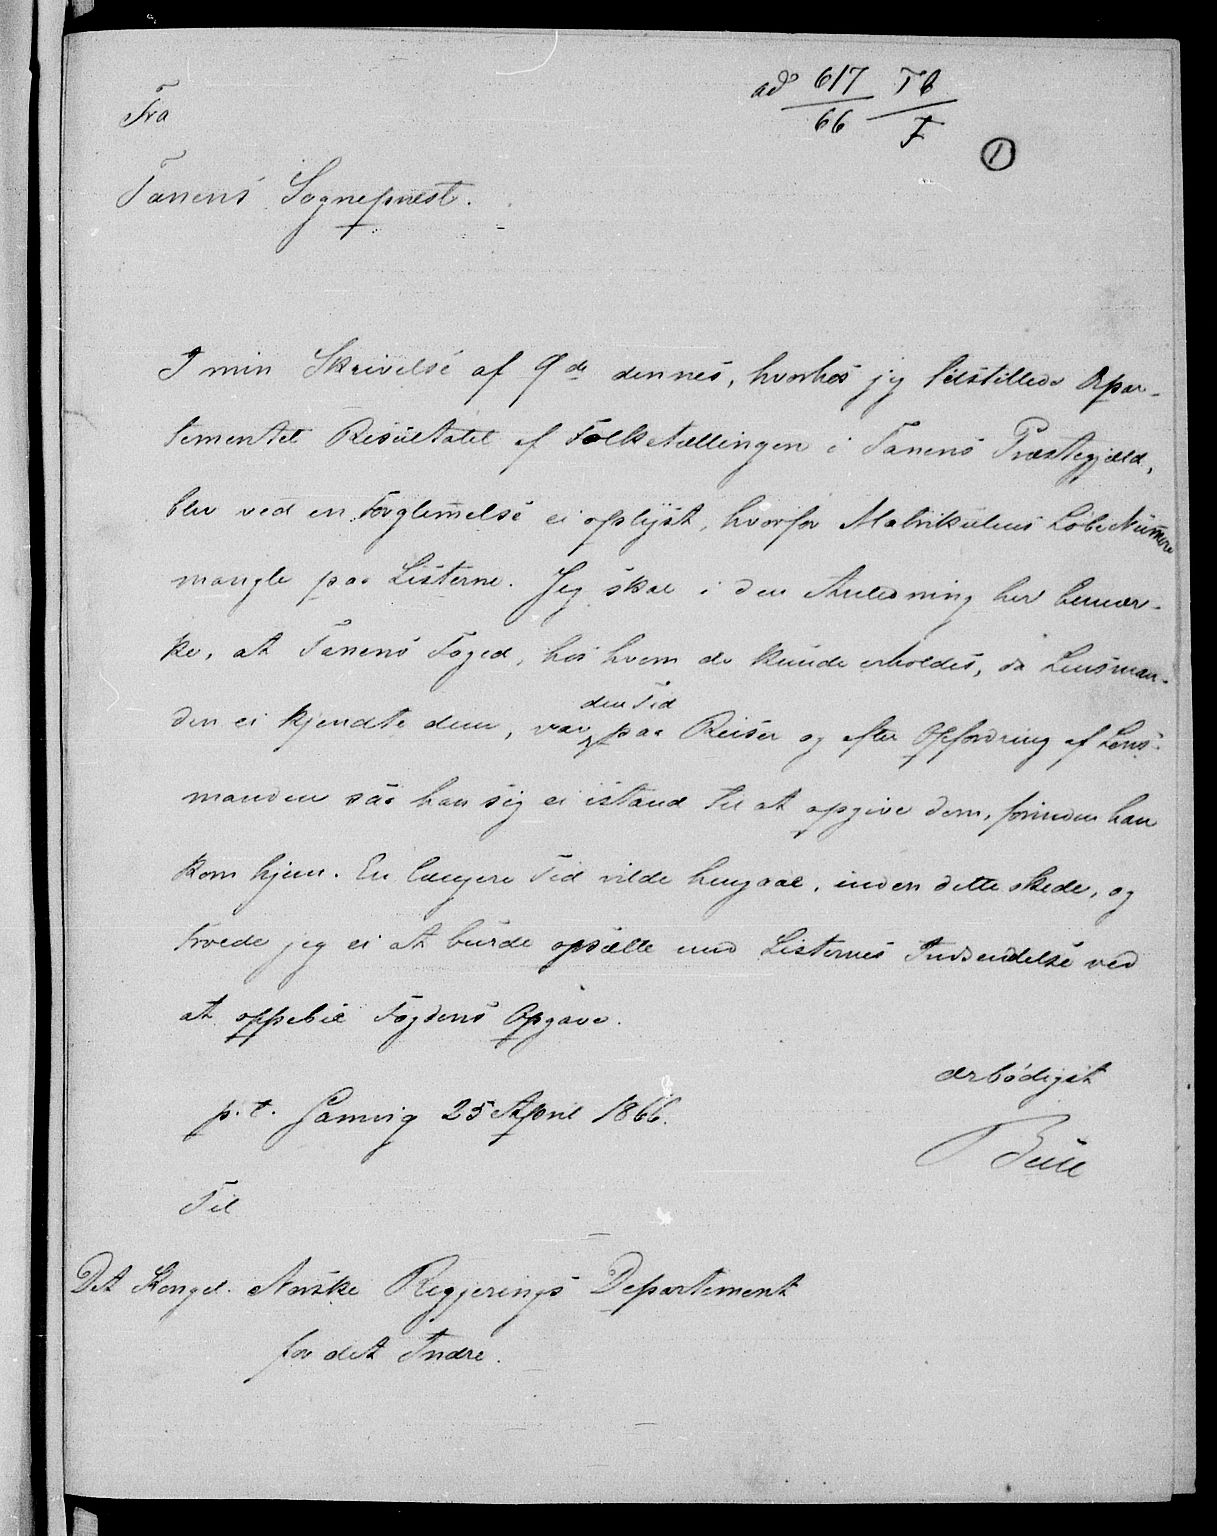 ad 617/66 Tb/F
1
Fra
Tanens Sognepræst.
I min Skrivelse af 9de dennes, hvorhos jeg tilstillede Depar-
tementet Resultatet af Folketællingen i Tanens Præstegjæld,
blev ved en Forglemmelse ei oplyst, hvorfor Matrikulens Løbe Numere
mangle paa Listerne. Jeg skal i den Anledning her bemær-
ke, at Tanens Foged, hos hvem de kunde erholdes, da Lensman-
den ei kjendte dem, var den Tid paa Reiser og efter Opfordring af Lens-
manden saa han sig ei istand til at opgive dem, forinden han
kom hjem. En længere Tid vilde hengaae, inden dette skede, og
troede jeg ei at burde opsætte med Listernes Indsendelse ved
at oppebie Fogdens Opgave.
ærbødigst
p. t. Gamvig 25 April 1866.
Til
Det Kongel. Norske Regjerings Departement
for det Indre.